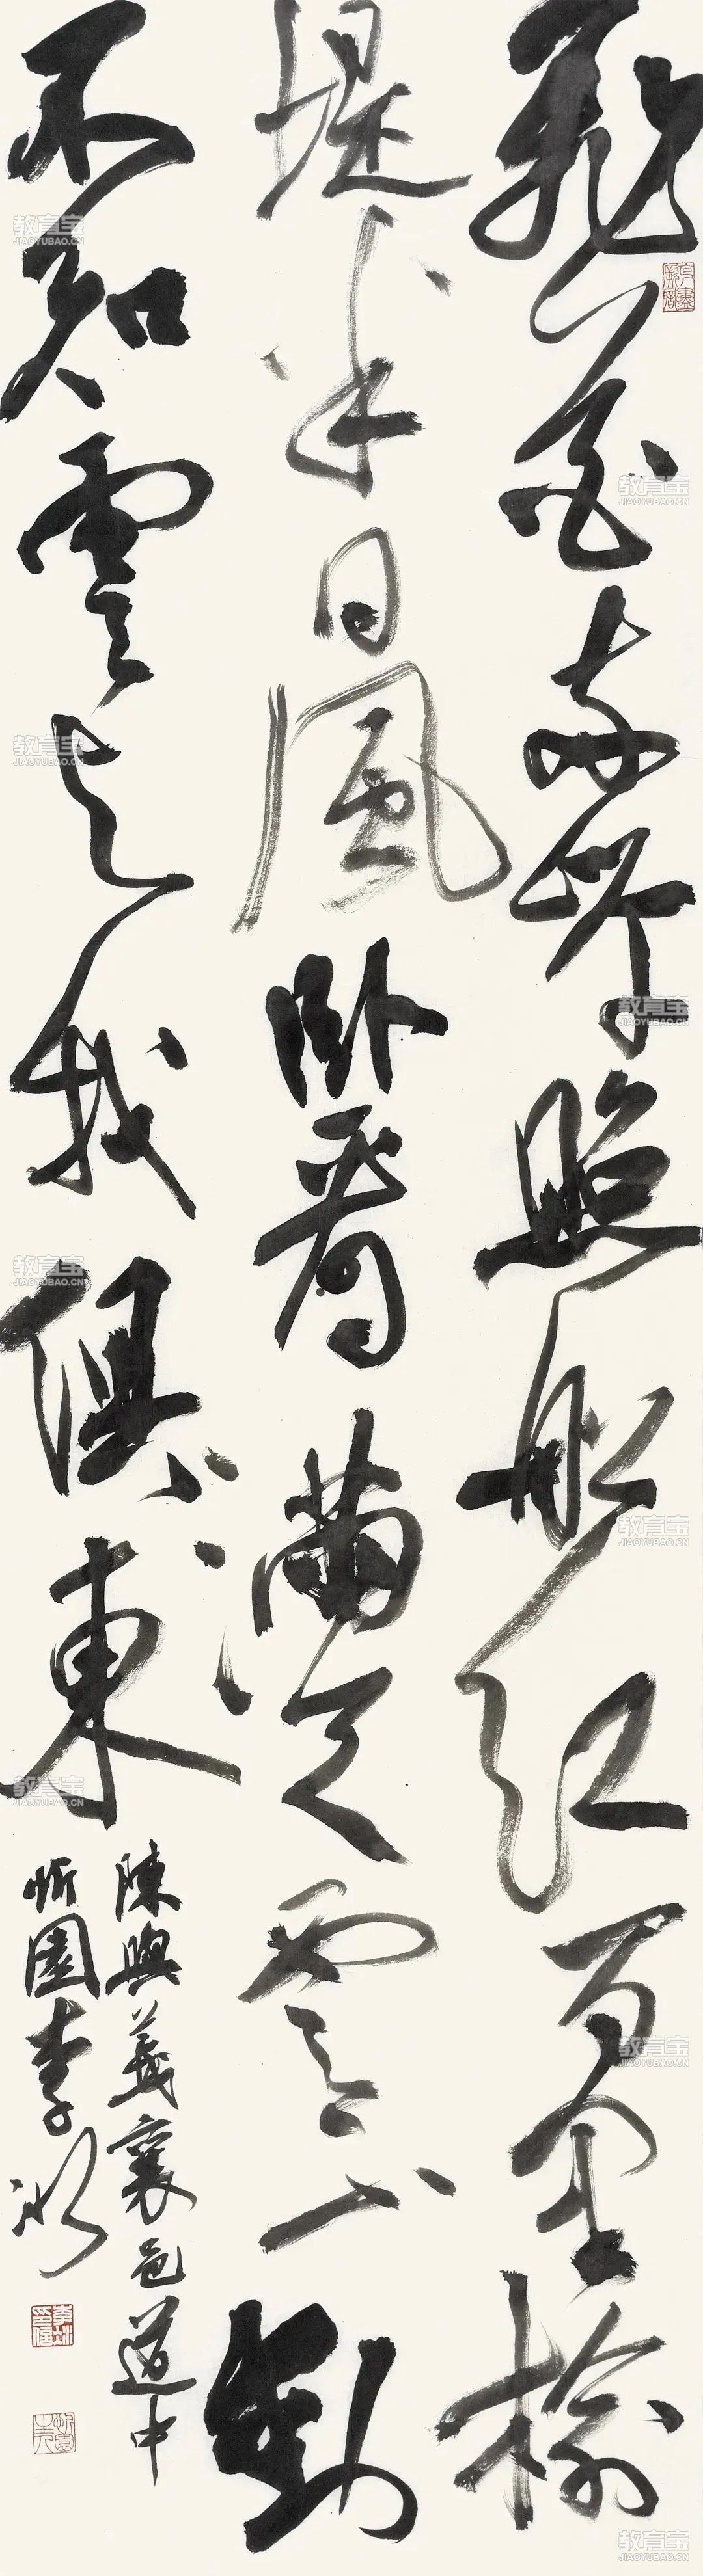 飛花兩岸照船紅百里榆
堤半日風臥看滿天雲不動
不知雲与我俱東
陳與義襄邑道中
忻園李冰
教育宝
JIAOYUBAO.CN